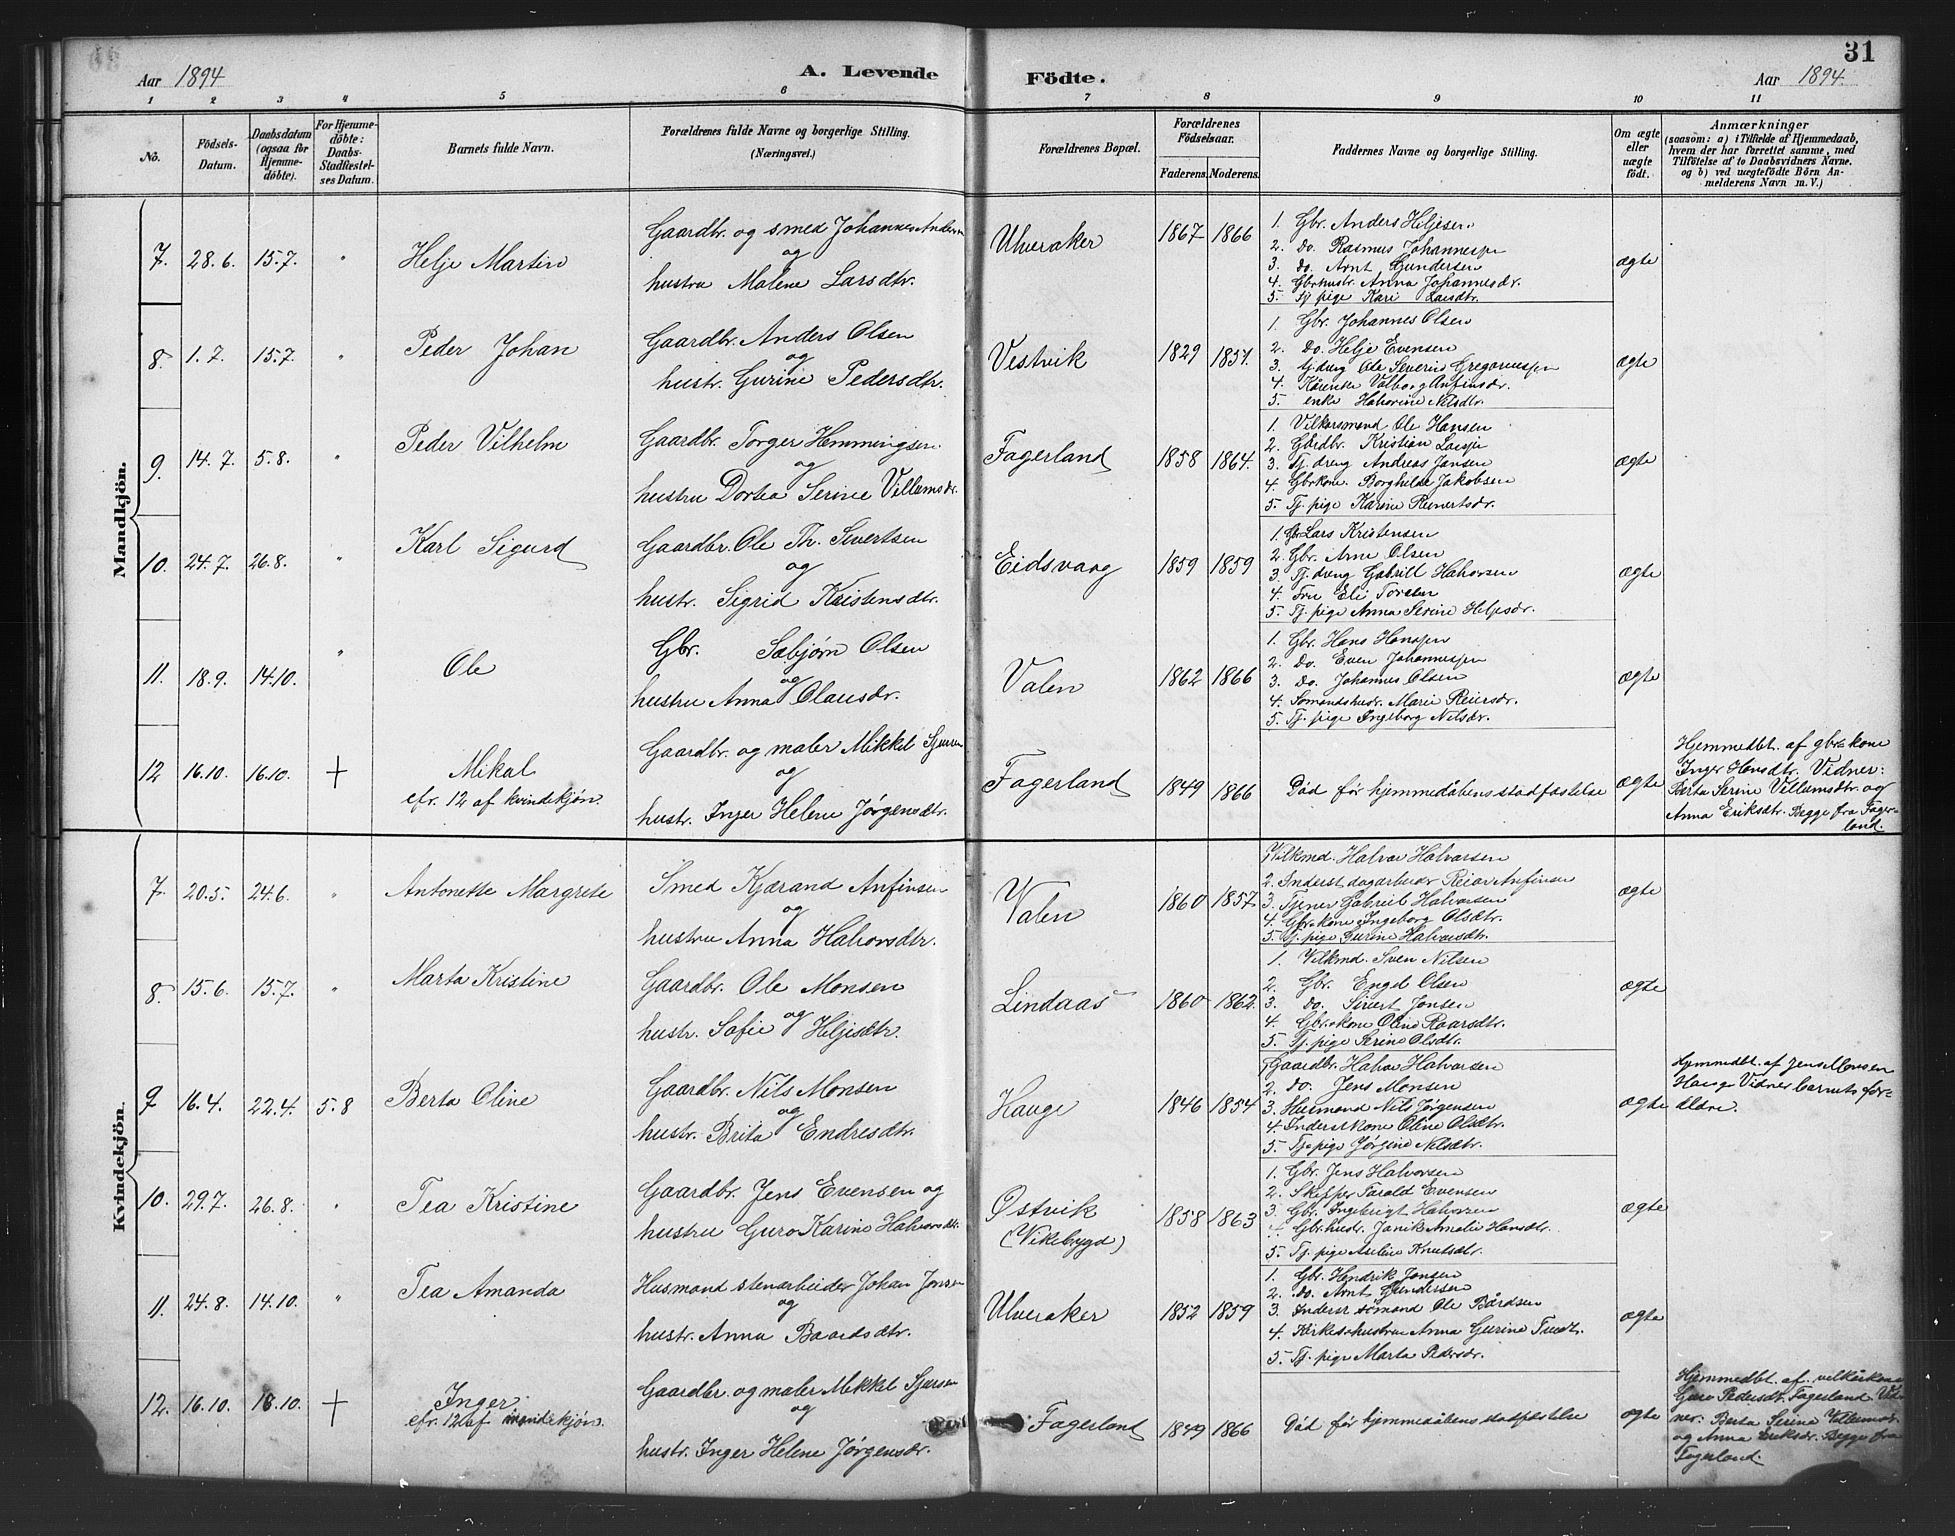 31
Aar 1894
A. Levende
Födte.
Aar 1894.
1 2 3 4 5 6 7 8 9 10 11
No.
Födsels-
Datum.
Daabsdatum
(ogsaa for
Hjemme-
döbte).
For Hjemme-
döbte:
Daabs-
Stadfæstel-
ses Datum.
Barnets fulde Navn.
Forældrenes fulde Navne og borgerlige Stilling.
(Næringsvei.)
Forældrenes Bopæl.
Forældrenes
Födselsaar.
Faderens. Moderens.
Faddernes Navne og borgerlige Stilling.
Om ægte
eller
uægte
födt.
Anmærkninger
(saasom: a) i Tilfælde af Hjemmedaab,
hvem der har forrettet samme, med
Tilföielse af to Daabsvidners Navne,
og b) ved uægtefödte Börn An-
melderens Navn m. V.)
Mandkjön.
7. 28.6. 15.7. " Helje Martin
Gaardbr. og smed Johannes Andersen
og
hustru Malene Larsdtr.
Ulveraker 1867 1866
1. Gbr. Anders Hiljesen
2. do. Rasmus Johannessen
3. do. Arnt Gundersen
4. Gbrhustr. Anna Johannesdr.
5. Tj pige Kari Larsdtr.
ægte
8. 1.7. 15.7. " Peder Johan
Gaardbr. Anders Olsen
og
hustr. Gurine Pedersdtr.
Vestvik 1829 1851.
1. Gbr. Johannes Olsen
2. Do. Helje Evensen
3. Ole Severin Gregoriussen
4. Valborg Anfinsdr.
5. enke Halvorine Nilsdtr.
ægte
9. 14.7. 5.8. " Peder Vilhelm
Gaardbr. Torger Hemmingsen
og
hustru Dortea Serine Villumsdr.
Fagerland 1858 1864.
1. Vilkaarsmand Ole Hansen
2. Gårdbr. Kristian Larsen
3. Tj. dreng Andreas Jansen
4. Gbrkone. Borghilde Jakobsen
5. Tj. pige Karine Reinertsdr.
ægte
10. 24.7. 26.8. " Karl Sigurd
Gaardbr. Ole Th. Sivertsen
og
hustr. Sigrid Kristensdtr.
Eidsvaag 1859 1859
1. Gbr Lars Kristensen
2. Gbr. Arne Olsen
3. Tj. dreng Gabriel Halvorsen
4. Fru Eli Torsen
5. Tj. pige Anna Serine Heljesdr.
ægte
11. 18.9. 14.10. " Ole
Gbr. Sæbjørn Olsen
og
hustru Anna Olausdr.
Valen 1862 1866
1. Gbr. Hans Hanssen
2. Do. Even Johannessen
3. Do. Johannes Olsen
4. Sømandshustr. Marie Reiersdr.
5. Tj. pige Ingeborg Nilsdr.
ægte
12 16.10. 16.10. + Mikal
cfr. 12 af kvindekjøn.
Gaardbr. og maler Mikkel Sjursen
og
hustr. Inger Helene Jørgensdtr.
Fagerland 1849 1866 Död før hjemmedåbens stadfæstelse ægte
Hjemmedbt. af gbr=kone
Inger Hansdtr. Vidner:
Berta Serine Villumsdtr. og
Anna Eriksdtr. Begge fra Fager-
land.
Kvindekjön.
7. 20.5. 24.6. " Antonette Margrete
Smed Kjærand Anfinsen
og
hustru Anna Halvorsdtr.
Valen 1860 1857.
1 Vilkmd. Halvor Halvorsen
2. Inderst dagarbeider Reiar Anfinsen
3. Tjener Gabriel Halvorsen
4. Gbrkone Ingeborg Olsdtr.
5. Tj. pige Gurine Halvorsdtr.
ægte
8. 15.6. 15.7. " Marta Kristine
Gaardbr. Ole Monsen
og
hustr. Sofie Heljesdtr.
Lindaas 1860 1862.
1. Vilkmd. Sven Nilsen
2. Gbr. Engel Olsen
3. Do. Sivert Jonsen
4. Gbr.kone Oline Roarsdtr.
5. Tj. pige Serine Olsdtr.
ægte
9 16.4. 22.4. 5.8 Berta Oline
Gaardbr. Nils Monsen
og
hustr. Brita Endresdtr.
Hauge 1846 1854
1 Gaardbr. Halvor Halvorsen
2. Do. Jens Monsen
3. Husmand Nils Jørgensen
4. Inderstkone Oline Olsdtr.
5. Tj. pige Jørgine Nilsdtr.
ægte
Hjemmedbt. af Jens Monsen
Hauge Vidner barnets for-
ældre.
10. 29.7. 26.8. " Tea Kristine
Gaardbr. Jens Evensen og
hustru Guro Karine Halvorsdtr.
Østvik
(Vikebygd)
1858 1863
1. Gbr. Jens Halvorsen
2. Skipper Tarald Evensen
3. Gbr. Ingebrigt Halvorsen
4. Gbr.hustr. Janik Amalie Hansdtr.
5. Tj. pige Aseline Knutsdtr.
ægte
11. 24.8. 14.10. " Tea Amanda
Husmand stenarbeider Johan Jonsen
og
hustr. Anna Baardsdtr.
Ulveraker 1852 1859
1. Gbr. Hendrik Jonsen
2. Do. Arnt Gundersen
3. Inderst sömand Ole Bårdsen
4. Anna Gurine
5. Tj. pige Marta Pedersdr.
ægte
12. 16.10. 16.10 + Inger
cfr. 12 af mandekjøn.
Gaardbr. og maler Mikkel Sjursen
og
hustr. Inger Helene Jørgensdr.
Fagerland 1849 1866 Död før hjemmedåbens stadfæstelse ægte
Hjemmedbt. af vilkårkone
Guro Pedersdt. Fagerland. Vid-
ner: Berta Serine Villumsdr.
og Anna Eriksdr. Begge fra
Fagerland.